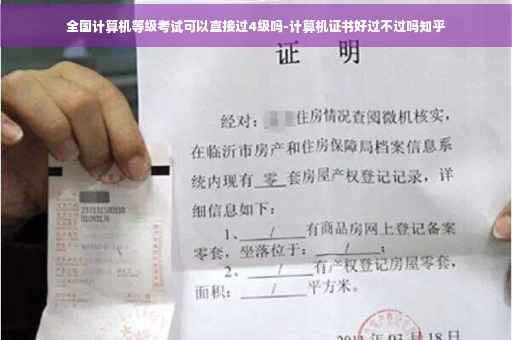 全国计算机等级考试可以直接过4级吗-计算机证书好过不过吗知乎
证 明
经对： 住房情况查阅微机核实，
在临沂市房产和住房保障局档案信息系
统内现有 零 套房屋产权登记记录，详
细信息如下：
1、 / 有商品房网上登记备案
零套，坐落位于： / ；
2、 / 有产权登记房屋零套，
面积： / 平方米。
03 月 18 日